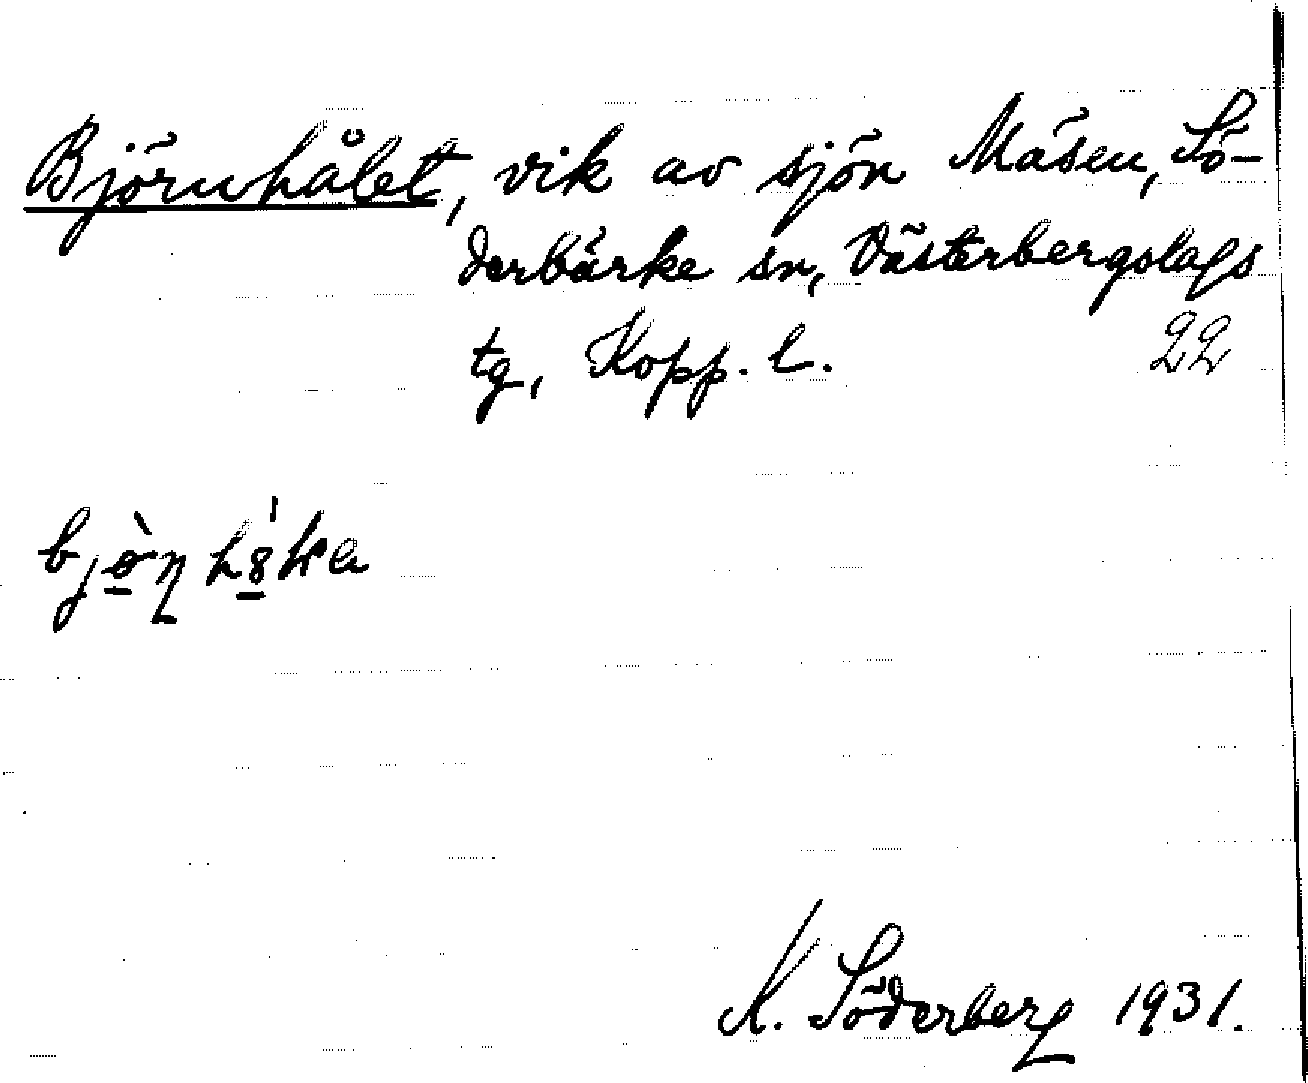 Björnhålet, vik av sjön Mäsen, Sö-
derbärke sn, Västerbergslags
tg, Kopp. l. 22
K. Söderberg 1931.